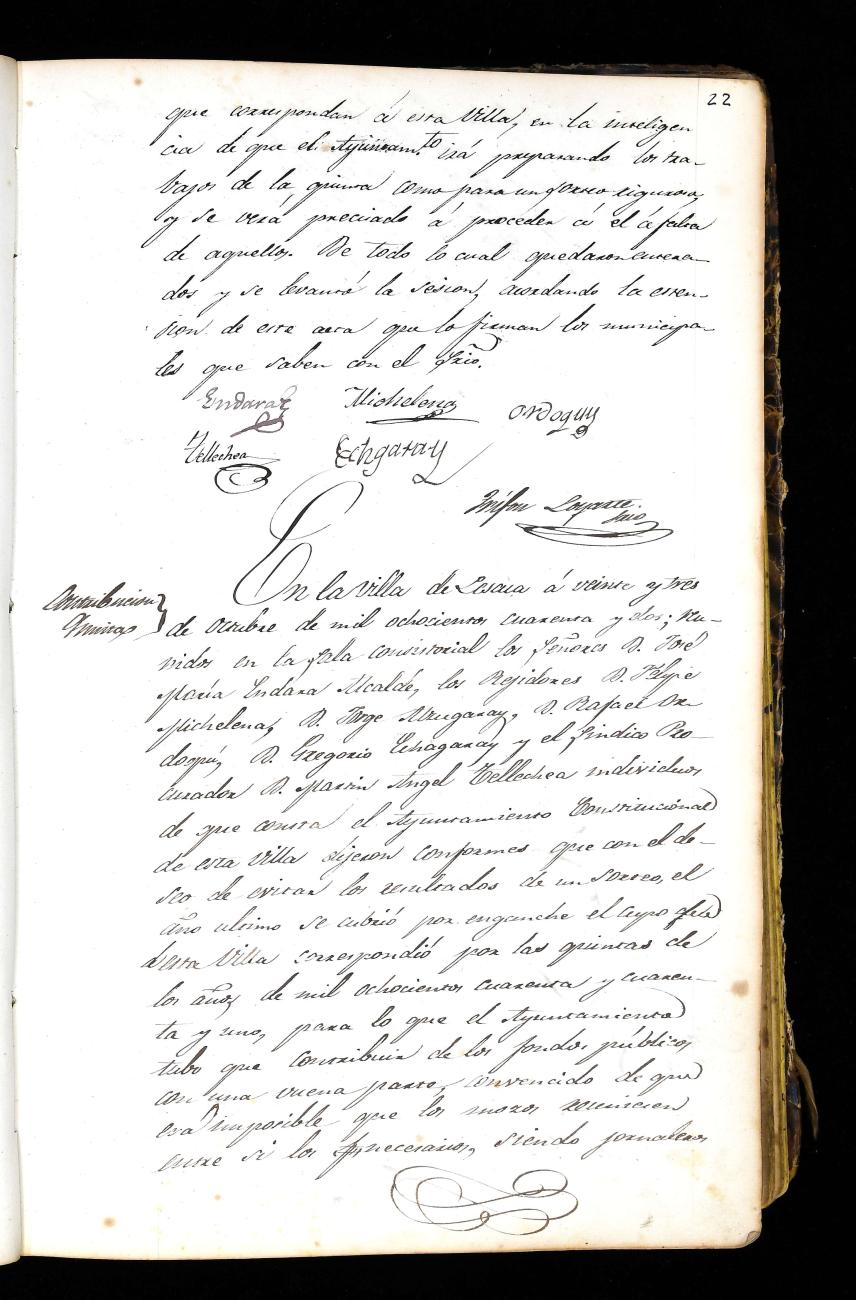 22
que correspondan á esta Villa, en la inteligen
cia de que el Ayuntam.to irá preparando los tra-
bajos de la quinta como para un sorteo riguroso,
y se verá preciado á proceder á el á falta
de aquellos. De todo lo cual quedaron entera-
dos y se levantó la sesion, acordando la esten-
sion de este acta que lo firman los municipa-
les que saben con el Srio.
Endara Michelena Ordoquy
Tellechea Echgaray
Loyarte
Srio
Contribucion
Quintas
En la Villa de Lesaca á veinte y tres
de Octubre de mil ochocientos cuarenta y dos; reu-
nidos en la Sala consistorial los Señores D. José
Maria Endara Alcalde, los Rejidores D. Felipe
Michelena, D. Jorge Alzugaray, D. Rafael Or-
doqui, D. Gregorio Echagaray y el Sindico Pro-
curador D. Martin Angel Tellechea individuos
de que consta el Ayuntamiento Constitucional
de esta Villa dijeron conformes que con el de-
seo de evitar los resultados de un sorteo, el
año ultimo se cubrió por enganche el cupo que
á esta Villa correspondió por las quintas de
los años de mil ochocientos cuarenta y cuaren-
ta y uno, para lo que el Ayuntamiento
tubo que contribuir de los fondos públicos
con una buena parte, convencido de que
era imposible que los mozos reuniesen
entre si los necesarios, siendo jornaleros